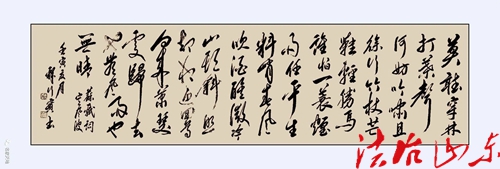 莫聽穿林
打葉聲
何妨吟嘯且
徐行竹杖芒
鞋輕勝馬
誰怕一蓑煙
雨任平生
料峭春風
吹酒醒微冷
山頭斜照
却相迎回首
向來蕭瑟
處歸去
也無風雨也
無晴
蘇軾詞
定風波
壬寅五月
法治山东